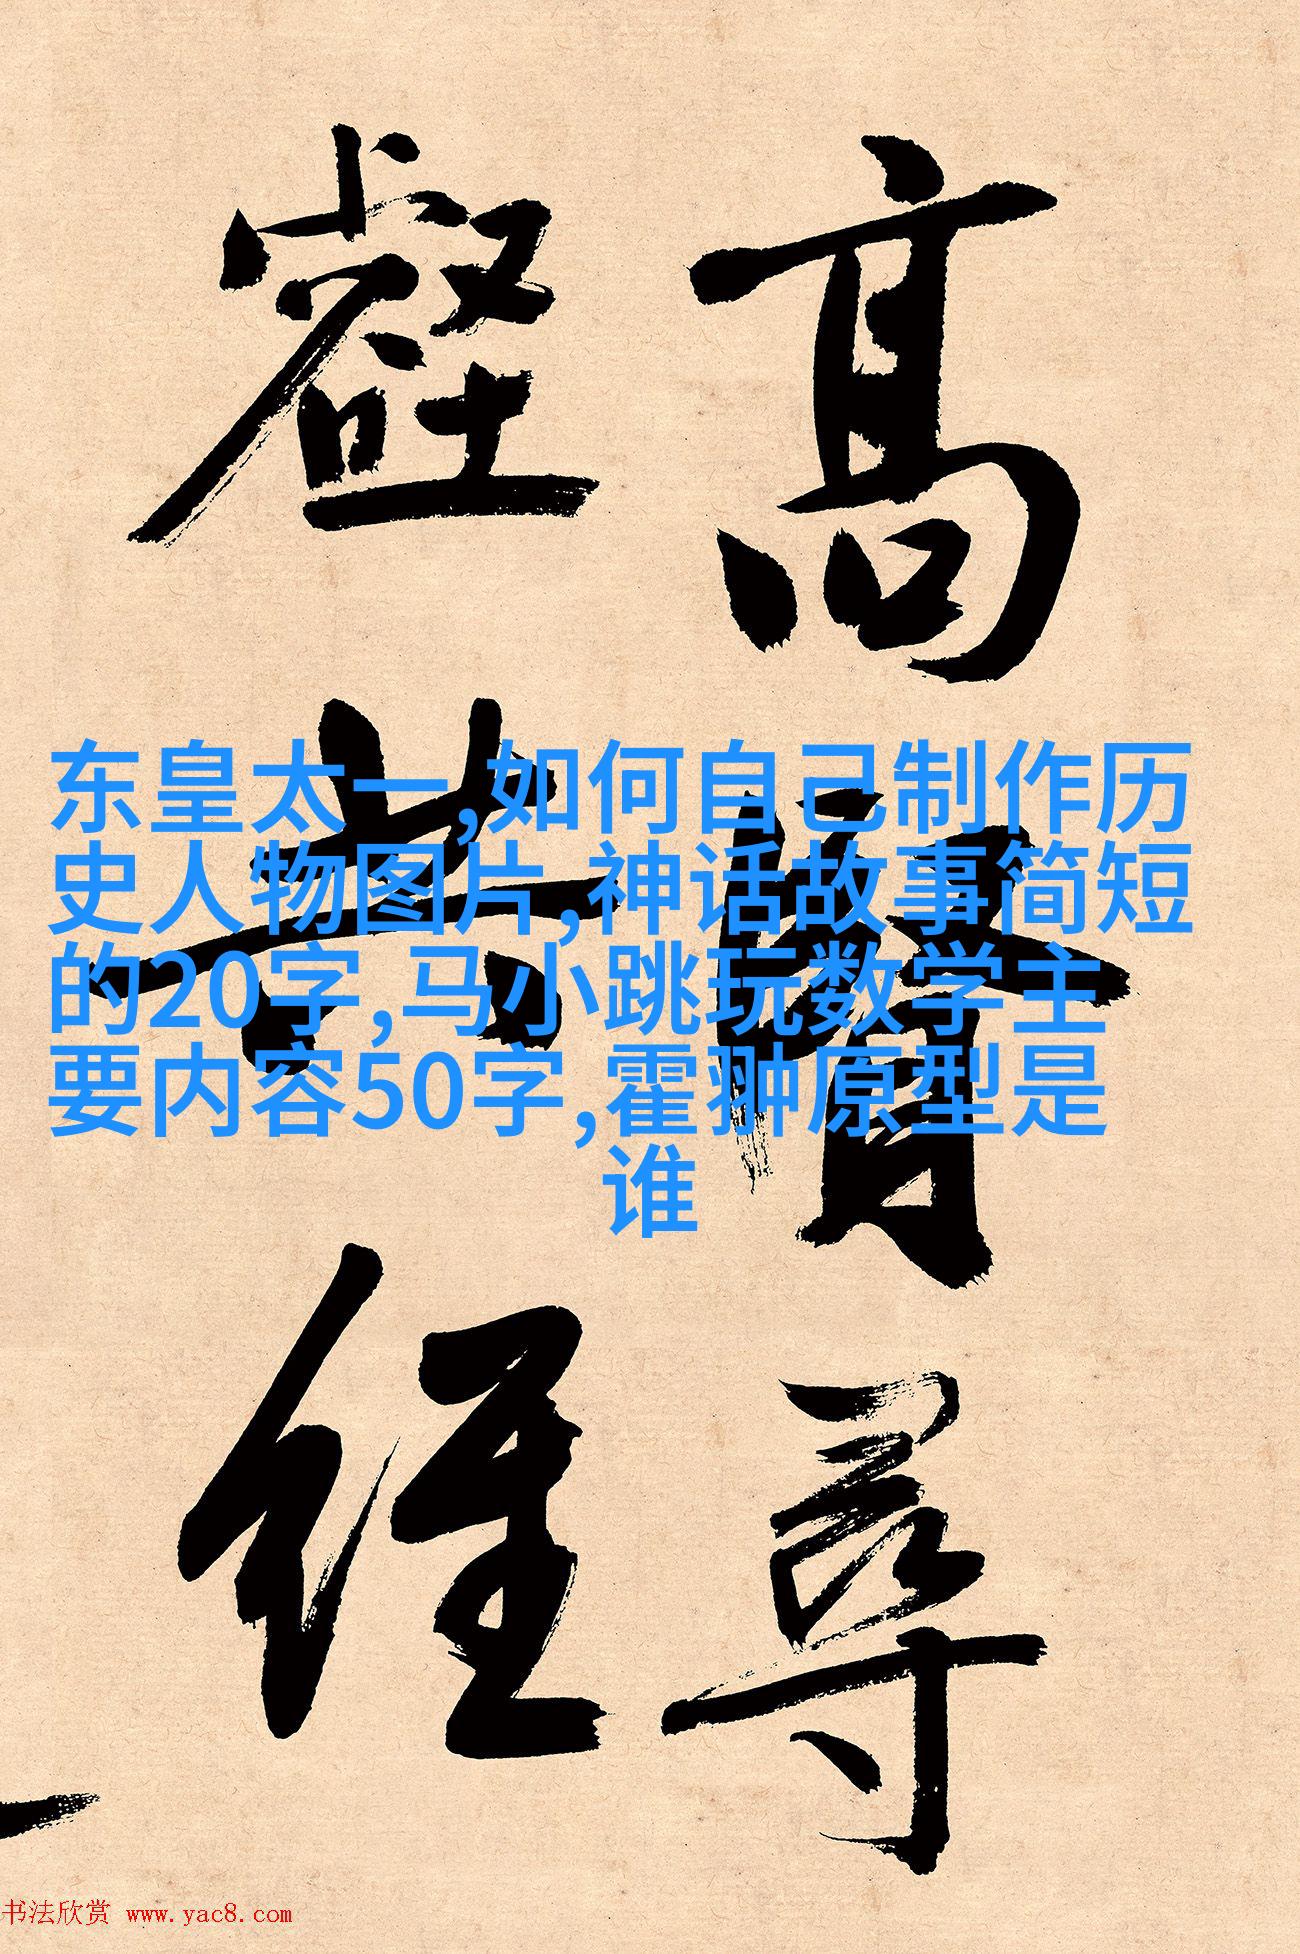 高賢尋
壑共經
东皇太一,如何自己制作历
史人物图片,神话故事简短
的20字,马小跳玩数学主
要内容50字,霍翀原型是
谁
书法欣赏 www.yac8.com